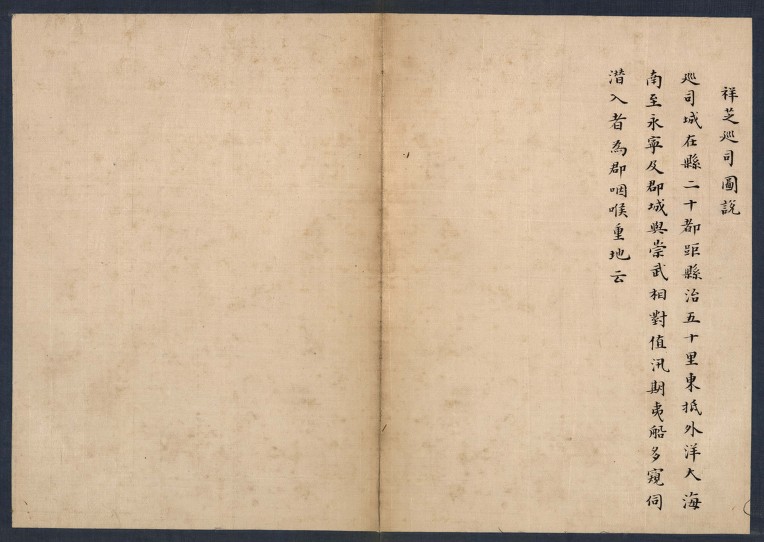 祥芝巡司圖說
巡司城在縣二十都距縣治五十里東抵外洋大海
南至永寧及郡城與崇武相對值汛期夷船多窺伺
潜入者為郡咽喉重地云